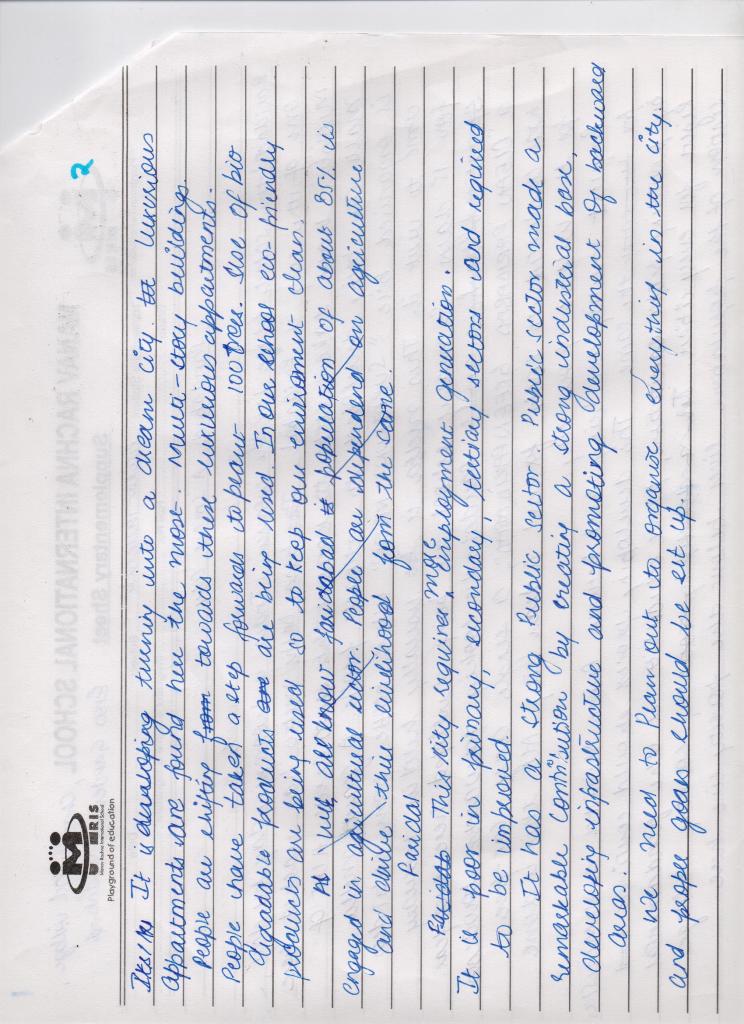 2
MRIS
Manav Rachna International School
Playground of education
MANAV RACHNA INTERNATIONAL SCHOOL
Supplementary Sheet
It is developing turning into a dream city. luxurious
appartments are found here the most. Multi-story buildings.
People are shifting from towards these luxurious appartments.
People have taken a step forwards to plant 100 trees. Use of bio
degradable products are are being used. In our school eco-friendly
products are being used so to keep our enviroment clean.
As we all know faridabad is population of about 85% is
engaged in agricultural sector. People are dependend on agriculture
and derive their livelihood from the same.
Faridal
This city requires more Employment generation.
It is poor in primary, secondary, tertiary sectors and required
to be improved.
It has a strong Public sector. Public sector made a
remarkable contribution by creating a strong industrial base,
developing infrastructure and promoting development of backward
areas.
We need to plan out to organise everything in the city.
and people goals should be set up.